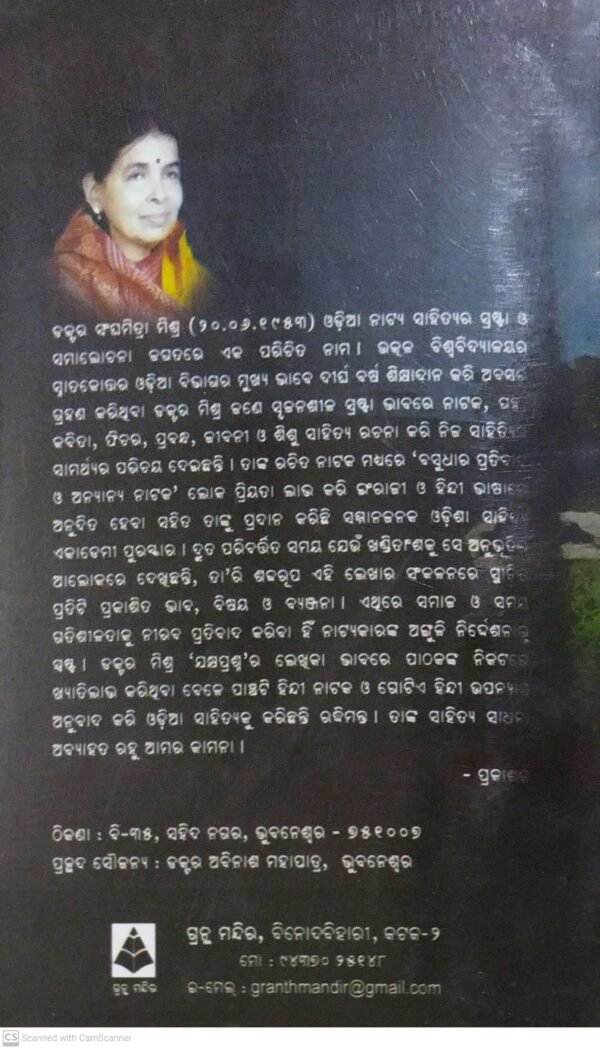 ଡକ୍ଟର ସଂଘମିତ୍ରା ମିଶ୍ର (୨୦.୦୬.୧୯୫୩) ଓଡ଼ିଆ ନାଟ୍ୟ ସାହିତ୍ୟର ସ୍ରଷ୍ଟା ଓ
ସମାଲୋଚନା ଜଗତରେ ଏକ ପରିଚିତ ନାମ। ଉତ୍କଳ ବିଶ୍ୱବିଦ୍ୟାଳୟର
ସ୍ନାତକୋତ୍ତର ଓଡ଼ିଆ ବିଭାଗର ମୁଖ୍ୟ ଭାବେ ଦୀର୍ଘ ବର୍ଷ ଶିକ୍ଷାଦାନ କରି ଅବସର
ଗ୍ରହଣ କରିଥିବା ଡକ୍ଟର ମିଶ୍ର ଜଣେ ସୃଜନଶୀଳ ସ୍ରଷ୍ଟା ଭାବରେ ନାଟକ,
କବିତା, ଫିଚର, ପ୍ରବନ୍ଧ, ଜୀବନୀ ଓ ଶିଶୁ ସାହିତ୍ୟ ରଚନା କରି ନିଜ
ସାମର୍ଥ୍ୟର ପରିଚୟ ଦେଇଛନ୍ତି। ତାଙ୍କ ରଚିତ ନାଟକ ମଧ୍ୟରେ ‘ବସୁଧାର
ଓ ଅନ୍ୟାନ୍ୟ ନାଟକ’ ଲୋକ ପ୍ରିୟତା ଲାଭ କରି ଇଂରାଜୀ ଓ ହିନ୍ଦୀ ଭାଷାରେ
ଅନୁଦିତ ହେବା ସହିତ ତାଙ୍କୁ ପ୍ରଦାନ କରିଛି ସମ୍ମାନଜନକ ଓଡ଼ିଶା ସାହିତ୍ୟ
ଏକାଡେମୀ ପୁରସ୍କାର। ଦ୍ରୁତ ପରିବର୍ତ୍ତିତ ସମୟ ଯେଉଁ ଖଣ୍ଡିତାଂଶକୁ ସେ
ଆଲୋକରେ ଦେଖିଛନ୍ତି, ତା’ରି ଶବ୍ଦରୂପ ଏହି ଲେଖାର ସଂକଳନରେ
ପ୍ରତିଟି ପ୍ରକାଶିତ ଭାବ, ବିଷୟ ଓ ବ୍ୟଞ୍ଜନା। ଏଥିରେ ସମାଜ ଓ ସମୟ
ଗତିଶୀଳତାକୁ ନୀରବ ପ୍ରତିବାଦ କରିବା ହିଁ ନାଟ୍ୟକାରଙ୍କ ଅଙ୍ଗୁଳି
ସ୍ପଷ୍ଟ। ଡକ୍ଟର ମିଶ୍ର ‘ଯକ୍ଷପ୍ରଶ୍ନ’ର ଲେଖିକା ଭାବରେ ପାଠକଙ୍କ ନିକଟରେ
ଖ୍ୟାତିଲାଭ କରିଥିବା ବେଳେ ପାଞ୍ଚଟି ହିନ୍ଦୀ ନାଟକ ଓ ଗୋଟିଏ ହିନ୍ଦୀ ଉପନ୍ୟାସ
ଅନୁବାଦ କରି ଓଡ଼ିଆ ସାହିତ୍ୟକୁ କରିଛନ୍ତି ଋଦ୍ଧିମନ୍ତ। ତାଙ୍କ ସାହିତ୍ୟ ସାଧନା
ଅବ୍ୟାହତ ରହୁ ଆମର କାମନା।
- ପ୍ରକାଶକ
ଠିକଣା : ବି-୩୫, ସହିଦ ନଗର, ଭୁବନେଶ୍ୱର - ୭୫୧୦୦୭
ପ୍ରଚ୍ଛଦ ସୌଜନ୍ୟ : ଡକ୍ଟର ଅବିନାଶ ମହାପାତ୍ର, ଭୁବନେଶ୍ୱର
ଗ୍ରନ୍ଥ ମନ୍ଦିର, ବିନୋଦବିହାରୀ, କଟକ-୨
ମୋ : ୯୪୩୭୦ ୨୫୧୪୮
ଇ-ମେଲ୍ : granthmandir@gmail.com
ଗ୍ରନ୍ଥ ମନ୍ଦିର
CS Scanned with CamScanner